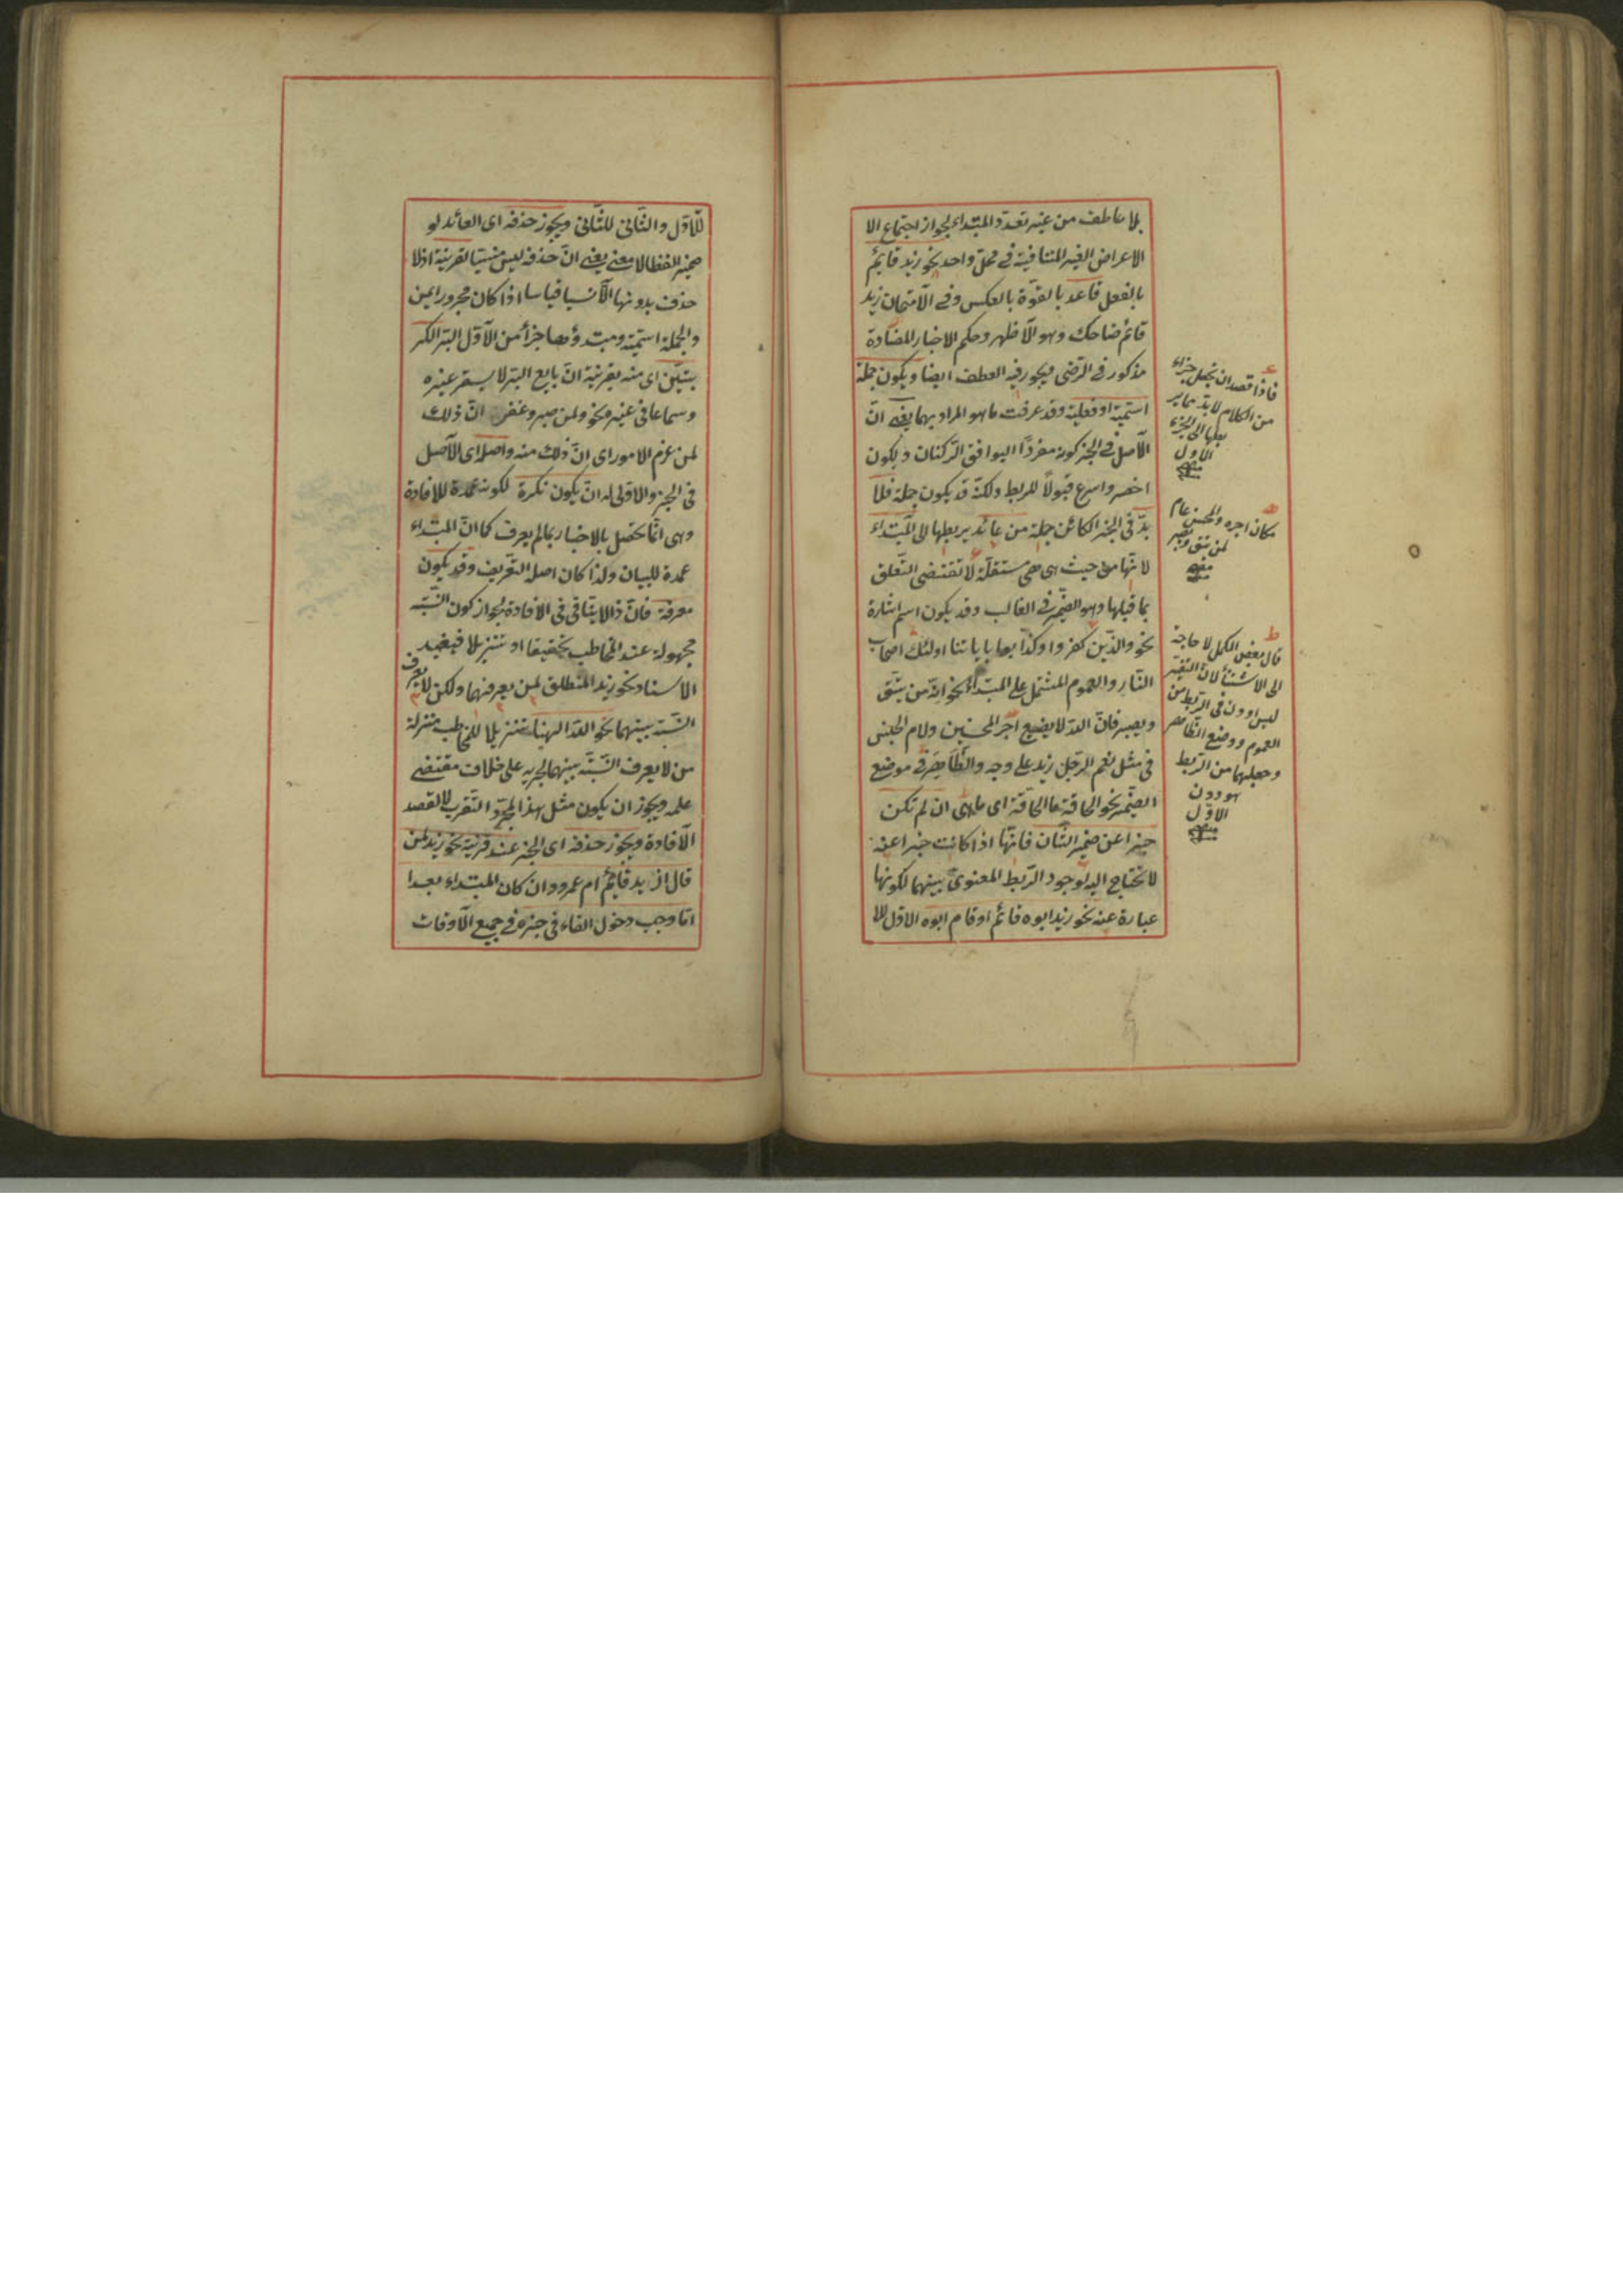 بلا عاطف من غير تعدد المبتداء لجواز اجتماع الا
الاعراض الغير المتنافية في محل واحد نحو زيد قائم
بالفعل قاعد بالقوة بالعكس وفي الامتحان زيد
قائم ضاحك وهو الاظهر وحكم الاخبار المضادة
مذكور في الرضى ويجوز فيه العطف ايضا ويكون جملة
اسمية او فعلية وقد عرفت ما هو المراد بهما يعني ان
الاصل في الخبر كونه مفردا ليوافق الركنان ويكون
اخصر واسرع قبولا للربط ولكنه قد يكون جملة فلا
بد في الخبر الكائن جملة من عائد يربطها الى المبتداء
لانها من حيث هي هي مستقلة لا تقتضي التعلق
بما قبلها وهو الضمير في الغالب وقد يكون اسم اشارة
نحو والذين كفروا وكذبوا بآياتنا اولئك اصحاب
النار والعموم المشتمل على المبتداء نحو انه من يتق
ويصبر فان الله لا يضيع اجر المحسنين ولام الجنس
في مثل نعم الرجل زيد على وجه والظاهر في موضع
الضمير نحو الحاقة ما الحاقة اى ما هى ان لم تكن
خبرا عن ضمير الشان فانها اذا كانت خبرا عنه
لا تحتاج اليه لوجود الربط المعنوى بينهما لكونها
عبارة عنه نحو زيد ابوه قائم او قام ابوه الاول للا
فاذا قصد ان تجعل جزاء
من الكلام لا بد مما ير
بطها الى الجزء
الاول
منه
مكان اجره والمحسنين عام
لمن يتق ويصبر
منه
قال بعض الكمل لا حاجة
الى الاستثناء لان التفسير
ليس ادون في الربط من
العموم ووضع الظاهر
وجعلهما من الربط
هو دون
الاول
منه
للاول والثاني للثاني ويجوز حذفه اى العائد لو
ضمير لفظا لا معنى يعني ان حذفه ليس منسيا لقرينة اذ لا
حذف بدونها الا نسيا قياسا اذا كان مجرورا بمن
والجملة اسمية ومبتدؤها جزأ من الاول البر الكر
بستين اى منه بقرينة ان بايع البر لا يسعر غيره
وسماعا في غيره نحو ولمن صبر وغفر ان ذلك
لمن عزم الامور اى ان ذلك منه واصله اى الاصل
في الخبر والاولى له ان يكون نكرة لكونه عمدة للافادة
وهي انما تحصل بالاخبار بما لم يعرف كما ان المبتداء
عمدة للبيان ولذا كان اصله التعريف وقد يكون
معرفة فان ذا لا ينافي في الافادة لجواز كون النسبة
مجهولة عند المخاطب تحقيقا او تنزيلا فيفيد
الاسناد نحو زيد المنطلق لمن يعرفهما ولكن لا يعرف
النسبة بينهما نحو الله الهنا تنزيلا للمخاطب منزلة
من لا يعرف النسبة بينهما لجريه على خلاف مقتضى
علمه ويجوز ان يكون مثل هذا لمجرد التقرب لا لقصد
الافادة ويجوز حذفه اى الخبر عند قرينة نحو زيد لمن
قال ازيد قائم ام عمرو وان كان المبتداء بعد ا
اما وجب دخول الفاء في خبره في جميع الاوقات